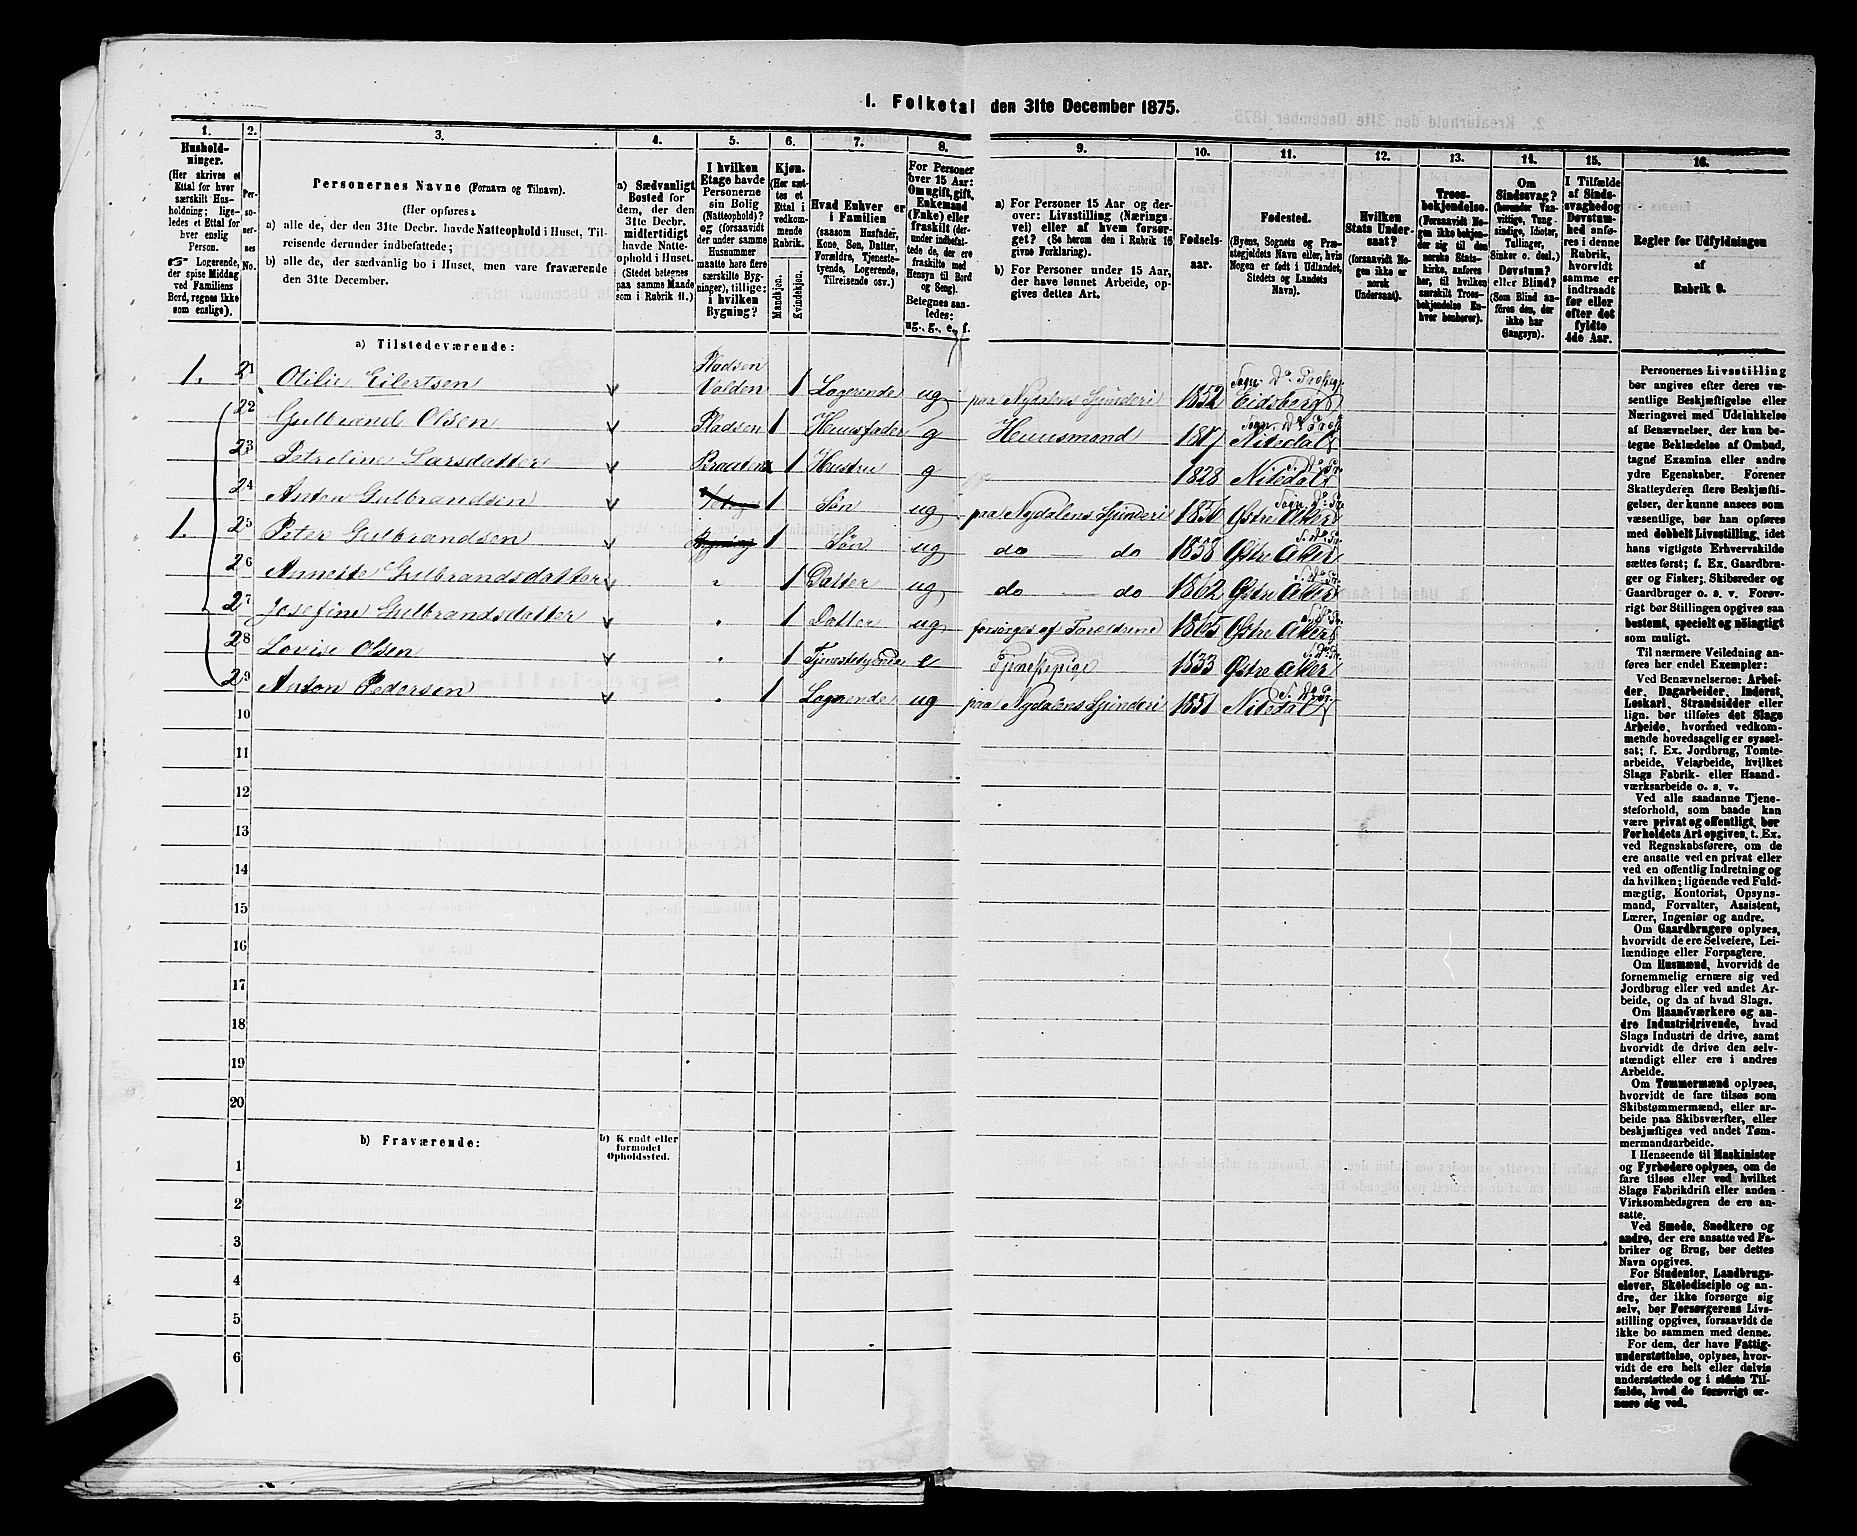 1. Folketal den 31te December 1875.
1. 2. 3. 4. 5. 6. 7. 8. 9. 10. 11. 12. 13. 14. 15. 16.
Hushold-
ninger.
(Her skrives et
Ettal for hver
særskilt Hus-
holdning; lige-
ledes et Ettal for
hver enslig
Person.
Logerende,
der spise Middag
ved Familiens
Bord, regnes ikke
som enslige).
Per-
so-
ner-
nes
No.
Personernes Navne (Fornavn og Tilnavn).
(Her opføres:
a) alle de, der den 31te Decbr. havde Natteophold i Huset, Til-
reisende derunder indbefattede;
b) alle de, der sædvanlig bo i Huset, men vare fraværende
den 31te December.
a) Sædvanligt
Bosted for
dem, der den
31te Decbr.
midlertidigt
havde Natte-
ophold i Huset.
(Stedet betegnes
paa samme Maade
som i Rubrik 11.)
I hvilken
Etage havde
Personerne
sin Bolig
(Natteophold)?
og (forsaavidt
der under samme
Husnummer
maatte høre flere
særskilte Byg-
ninger), tillige:
i hvilken
Bygning?
Kjøn.
(Her sæt-
tes et
Ettal i
vedkom-
mende
Rubrik.
Mandkjøn.
Kvindekjøn.
Hvad Enhver er
i Familien
(saasom Husfader,
Kone, Søn, Datter,
Forældre, Tjeneste-
tyende, Logerende,
Tilreisende osv.)
For Personer
over 15 Aar:
Om ugift, gift,
Enkemand
(Enke) eller
fraskilt (der-
under indbefat-
tede de, der ere
fraskilte med
Hensyn til Bord
og Seng).
Betegnes saa-
ledes:
ug., g., e., f.
a) For Personer 15 Aar og der-
over: Livsstilling (Nærings-
vei) eller af hvem forsør-
get? (Se herom den i Rubrik 16
givne Forklaring).
b) For Personer under 15 Aar,
der have lønnet Arbeide, op-
gives dettes Art.
Fødsels-
aar.
Fødested.
(Byens, Sognets og Præ-
stegjeldets Navn eller, hvis
Nogen er født i Udlandet,
Stedets og Landets
Navn).
Hvilken
Stats Under-
saat?
(forsaavidt No-
gen ikke er
norsk
Undersaat).
Troes-
bekjendelse.
(Forsaavidt No-
gen ikke bekjen-
der sig til den
norske Stats-
kirke, anføres
her, til hvilken
særskilt Troes-
bekjendelse En-
hver henhører).
Om
Sindssvag?
(herunder Van-
vittige, Tung-
sindige, Idioter,
Tullinger,
Sinker o. desl.)
Døvstum?
eller Blind?
(Som Blind an-
føres den, der
ikke har
Gangsyn).
I Tilfælde
af Sinds-
svaghed og
Døvstum-
hed anfø-
res i denne
Rubrik,
hvorvidt
samme er
indtraadt
før eller
efter det
fyldte
4de Aar.
Regler for Udfyldningen
af
Rubrik 9.
a) Tilstedeværende:
1. 21 Otilie Eilertsen Pladsen Volden 1 Logerende ug paa Nydalens Spinderi 1852 Sogn Do Præstg Eidsberg
22 Gulbrand Olsen Pladsen 1 Huusfader g Huusmand 1817 Sogn. Do Præst Nitedal
23 Petroline Larsdatter Braaten 1 Hustru g 1828 Nitedal
24 Anton Gulbrandsen 1 Søn ug paa Nydalens Spinderi 1856 Sogn Do Pr Østre Aker
1. 25 Peter Gulbrandsen Bygning 1 Søn ug do do 1858 S. Do Pr Østre Aker
26 Annette Gulbrandsdatter " 1 Datter ug do do 1862 S. Do Pr. Østre Aker
27 Josefine Gulbrandsdatter " 1 Datter ug forsørges af Forældrene 1865 S. Do Pr. Østre Aker
28 Lovise Olsen " 1 Tjenestetyende e Tjenestepige 1833 S. Do Pr. Østre Aker
29 Anton Pedersen " 1 Logerende ug paa Nydalens Spinderi 1851 S. Do Pr Nitedal
10
11
12
13
14
15
16
17
18
19
20
b) Fraværende:
b) Kjendt eller
formodet
Opholdssted.
1
2
3
4
5
6
Personernes Livsstilling
bør angives efter deres væ-
sentlige Beskjæftigelse eller
Næringsvei med Udelukkelse
af Benævnelser, der kun be-
tegne Beklædelse af Ombud,
tagne Examina eller andre
ydre Egenskaber. Forener
Skatteyderen flere Beskjæfti-
gelser, der kunne ansees som
væsentlige, bør han opføres
med dobbelt Livsstilling, idet
hans vigtigste Erhvervskilde
sættes først; f. Ex. Gaardbru-
ger og Fisker; Skibsreder og
Gaardbruger o. s. v. Forøv-
rigt bør Stillingen opgives saa
bestemt, specielt og nøiagtigt
som muligt.
Til nærmere Veiledning an-
føres her endel Exempler:
Ved Benævnelserne: Arbei-
der, Dagarbeider, Inderst,
Løskarl, Strandsidder eller
lign. bør tilføies det Slags
Arbeide, hvormed vedkom-
mende hovedsagelig er syssel-
sat; f. Ex. Jordbrug, Tomte-
arbeide, Veiarbeide, hvilket
Slags Fabrik- eller Haand-
værksarbeide o. s. v.
Ved alle saadanne Tjene-
steforhold, som baade kan
være privat og offentligt, bør
Forholdets Art opgives, t. Ex.
ved Regnskabsførere, om de
ere ansatte ved en privat eller
ved en offentlig Indretning og
da hvilken; lignende ved Fuld-
mægtig, Kontorist, Opsyns-
mand, Forvalter, Assistent,
Lærer, Ingeniør og andre.
Om Gaardbrugere oplyses,
hvorvidt de ere Selveiere, Lei-
lændinge eller Forpagtere.
Om Husmænd, hvorvidt de
fornemmelig ernære sig ved
Jordbrug eller ved andet Ar-
beide, og da af hvad Slags.
Om Haandværkere og an-
dre Industridrivende, hvad
Slags Industri de drive, samt
hvorvidt de drive den selv-
stændigt eller ere i andres
Arbeide.
Om Tømmermænd oplyses,
hvorvidt de fare tilsøs som
Skibstømmermænd, eller ar-
beide paa Skibsværfter, eller
beskjæftiges ved andet Tøm-
mermandsarbeide.
I Henseende til Maskinister
og Fyrbødere oplyses, om de
fare tilsøs eller ved hvilket
Slags Fabrikdrift eller anden
Virksomhedsgren de ere an-
satte.
Ved Smede, Snedkere og
andre, der ere ansatte ved Fa-
briker og Brug, bør dettes
Navn opgives.
For Studenter, Landbrugs-
elever, Skoledisciple og an-
dre, der ikke forsørge sig
selv, bør Forsørgerens Livs-
stilling opgives, forsaavidt de
ikke bo sammen med denne.
For dem, der have Fattig-
understøttelse, oplyses, hvor-
vidt de ere helt eller delvis
understøttede og i sidste Til-
fælde, hvad de forøvrigt er-
nære sig ved.